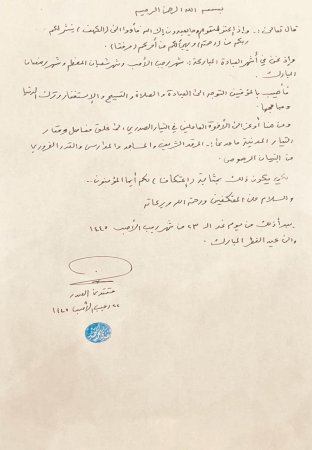 بسم الله الرحمن الرحيم
قال تعالى: .. وإذ إعتزلتموهم وما يعبدون إلا الله فأووا إلى (الكهف) ينشر لكم
ربكم من (رحمته) ويهيأ لكم من أمركم (مرفقا).
وإذ نحن في أشهر العبادة المباركة: شهر رجب الأصب وشهر شعبان المعظم وشهر رمضان
المبارك.
فأحب بالمؤمنين التوجه الى العبادة والصلاة والتسبيح والإستغفار وترك الدنيا
ومباهجها.
ومن هنا أوعز الى الأخوة العاملين في التيار الصدري الى غلق مفاصل ومقار
التيار الصدرية ما عدا: المرقد الشريف والمساجد والمدارس والقدر الضروري
من البنيان المرصوص.
لكي يكون ذلك بمثابة (إعتكاف) لكم أيها المؤمنون..
والسلام على المعتكفين ورحمة الله وبركاته
يبدأ ذلك من يوم غد الـ ٢٣ من شهر رجب الأصب ١٤٤٥
والى عيد الفطر المبارك.
مقتدى الصدر
٢٢ رجب الأصب ١٤٤٥